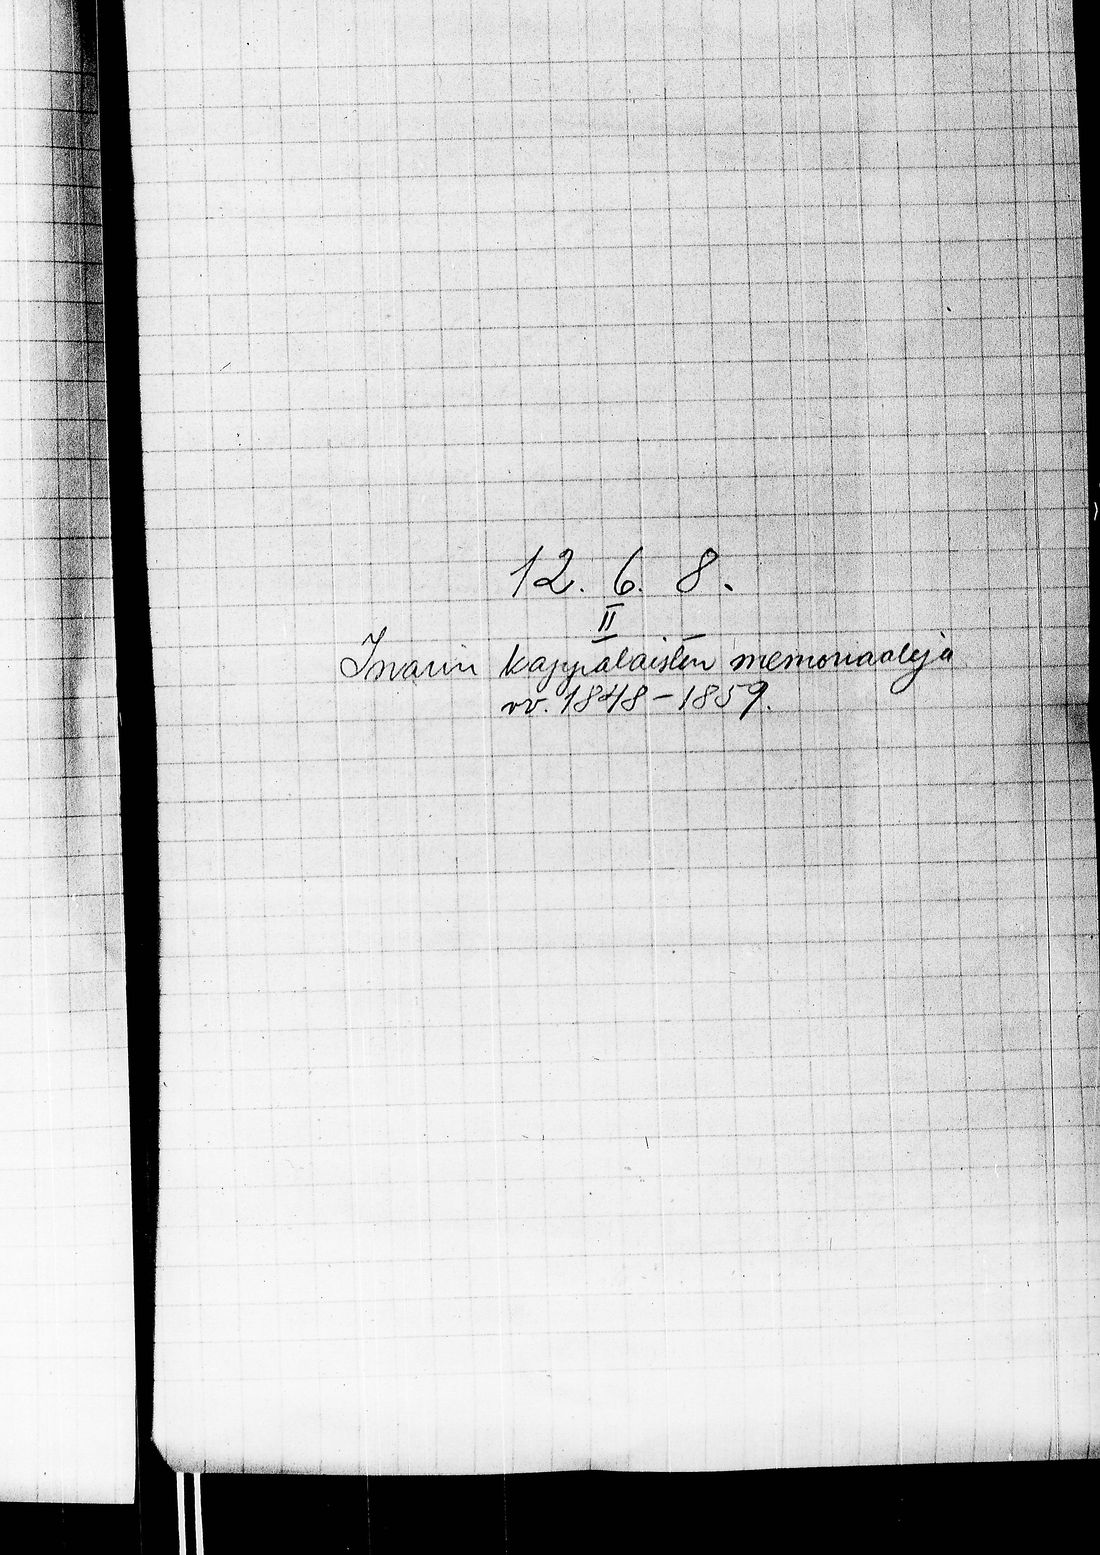 12. 6. 8.
II
Inarin kappalaisten memoriaaleja
vv. 1848-1859.